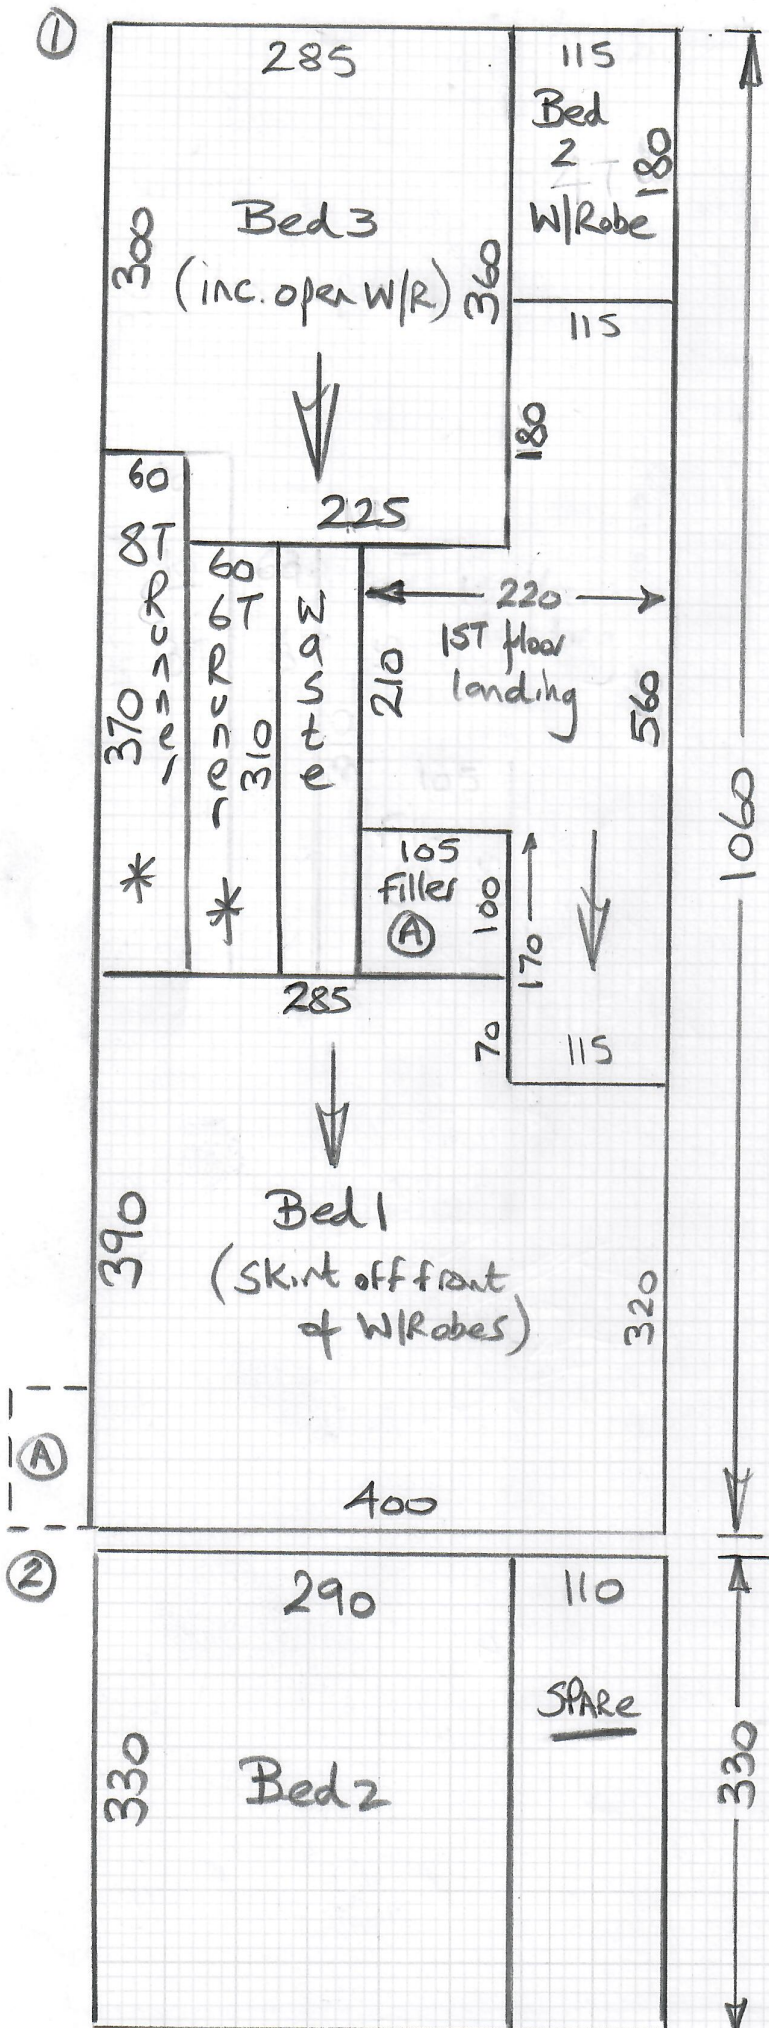 ①
285
115
Bed
2
W/Robe
180
300
Bed 3
(inc. open W/R)
360
115
180
225
60
8T
Runner
370
*
60
6T
Runer
310
*
Waste
220
1ST floor
landing
210
560
1060
105
filler
Ⓐ
100
170
70
115
285
390
Bed 1
(Skirt off front
of W/Robes)
320
Ⓐ
400
②
290
110
SPARe
330
Bed 2
330